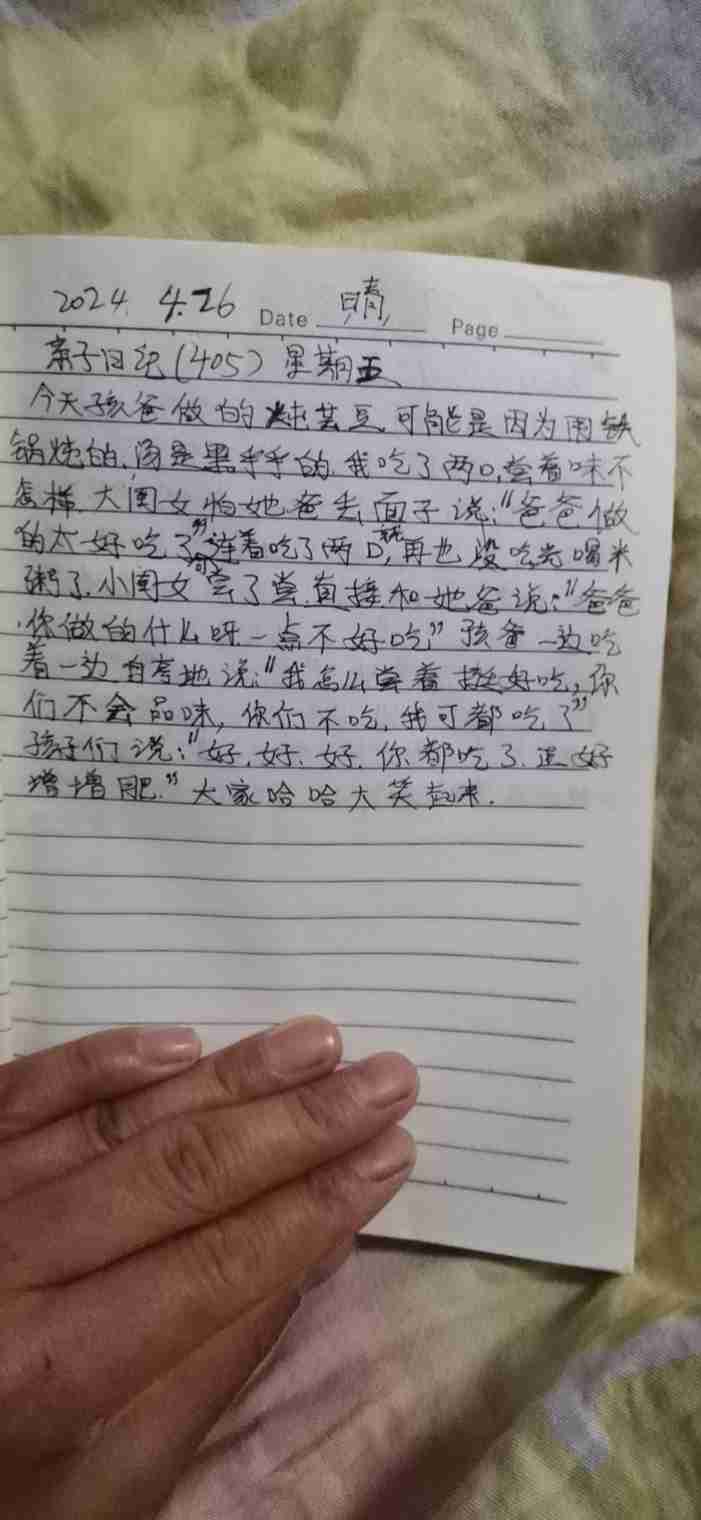 2024. 4.26 Date 晴 Page
亲子日记(405) 星期五
今天孩爸做的炖芸豆,可能是因为用铁
锅炖的,汤是黑乎乎的,我吃了两口,尝着味不
怎样,大闺女怕她爸丢面子说:"爸爸做
的太好吃了"连着吃了两口,就再也没吃光喝米
粥了.小闺女尝了尝,直接和她爸说:"爸爸
,你做的什么呀一点不好吃"孩爸一边吃
着一边自夸地说:"我怎么尝着挺好吃,你
们不会品味,你们不吃,我可都吃了"
孩子们说:"好,好,好,你都吃了,正好
增增肥."大家哈哈大笑起来.